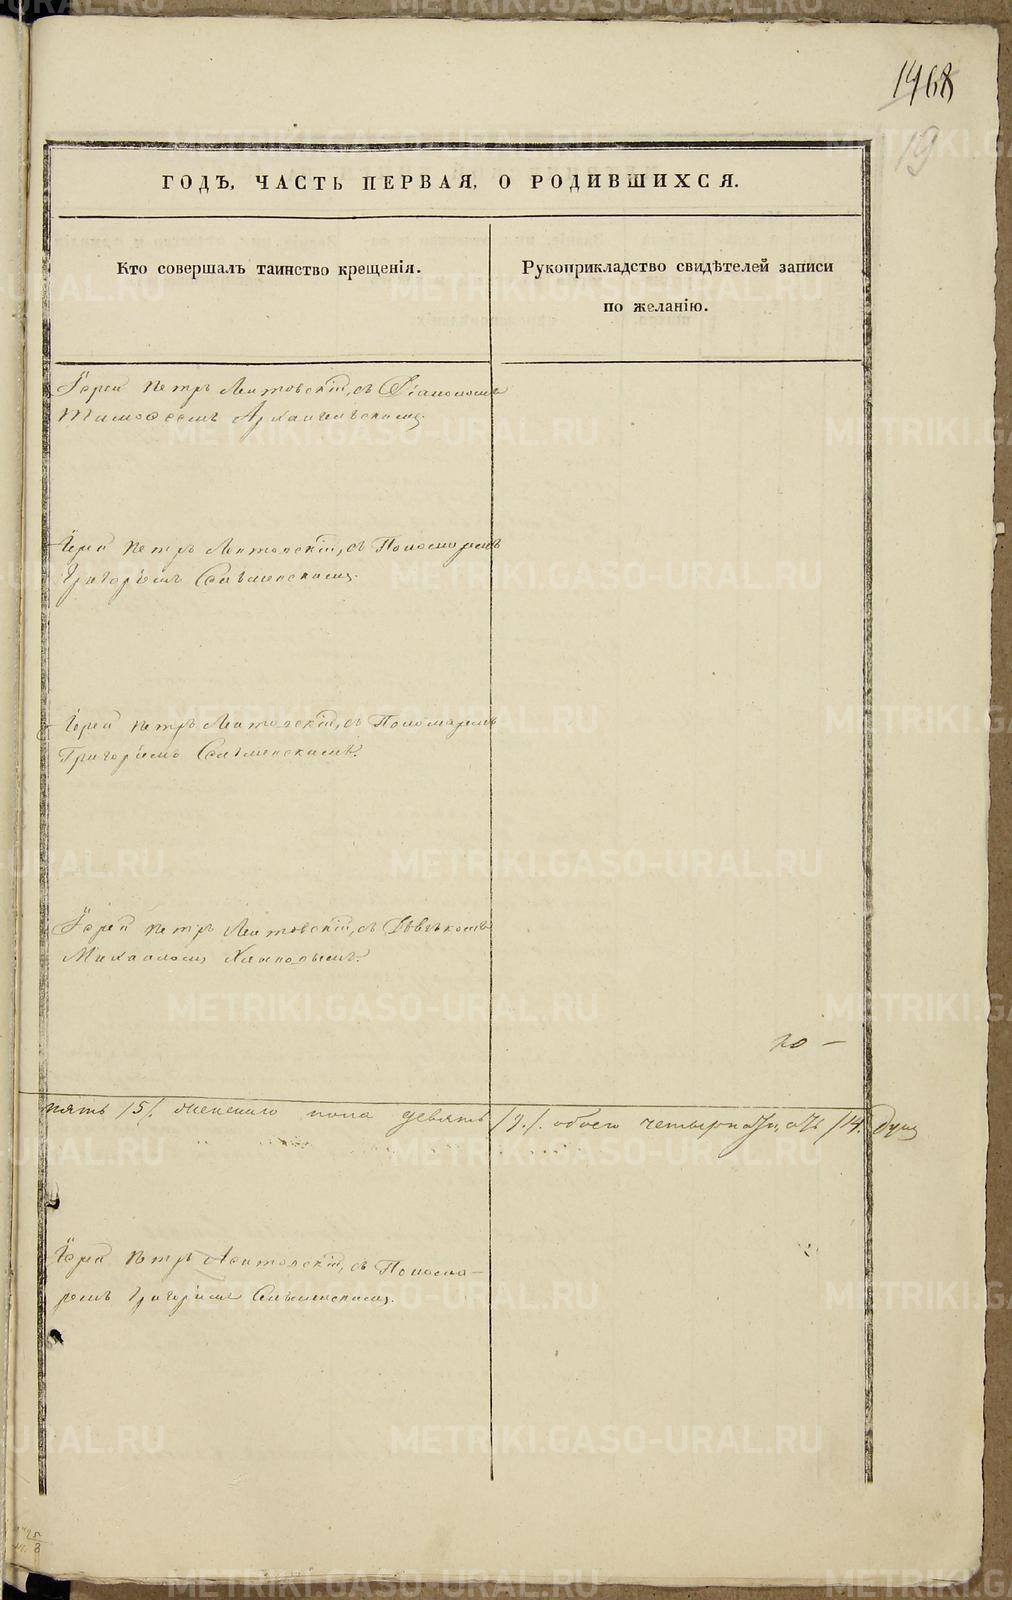 1468
19
ГОДЪ, ЧАСТЬ ПЕРВАЯ, О РОДИВШИХСЯ.
Кто совершалъ таинство крещенія.
Рукоприкладство свидѣтелей записи
по желанію.
Іерей Петръ Лятовскій, съ Діакономъ
Тимофеемъ Архангельскимъ
Іерей Петръ Лятовскій, съ Пономаремъ
Григоріемъ
Іерей Петръ Лятовскій, съ Пономаремъ
Григоріемъ
Іерей Петръ Лятовскій, съ Дьячкомъ
Михаиломъ
пять /5/. женскаго пола девять /9./. обоего четырнадцать /14. душъ
Іерей Петръ Лятовскій, съ Понома-
ремъ Григоріемъ
METRIKI.GASO-URAL.RU